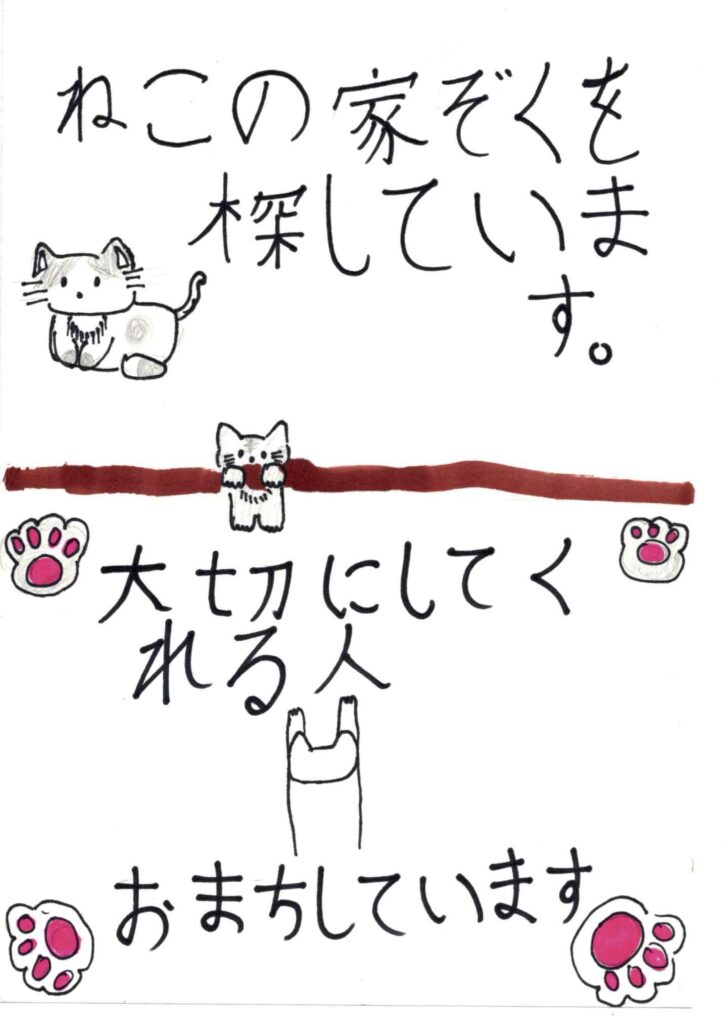 ねこの家ぞくを
探していま
す。
大切にしてく
れる人
おまちしています